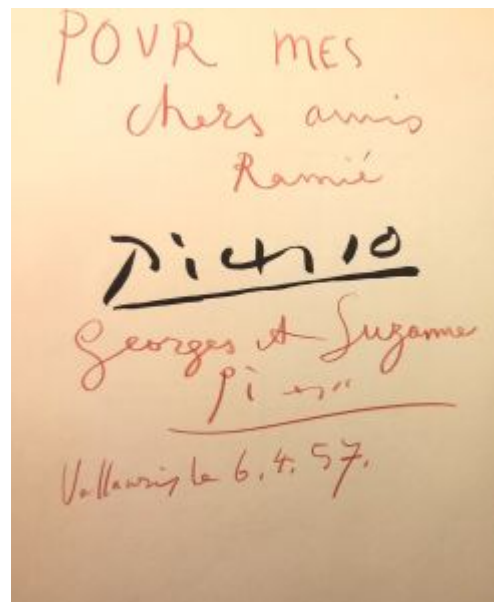 POUR MES
chers amis
Ramié
Picasso
Georges et Suzanne
Picasso
Vallauris le 6.4.57.